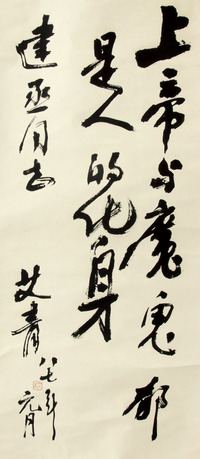 上帝与魔鬼都
是人的化身
建丞同志
艾青
八七年
元月